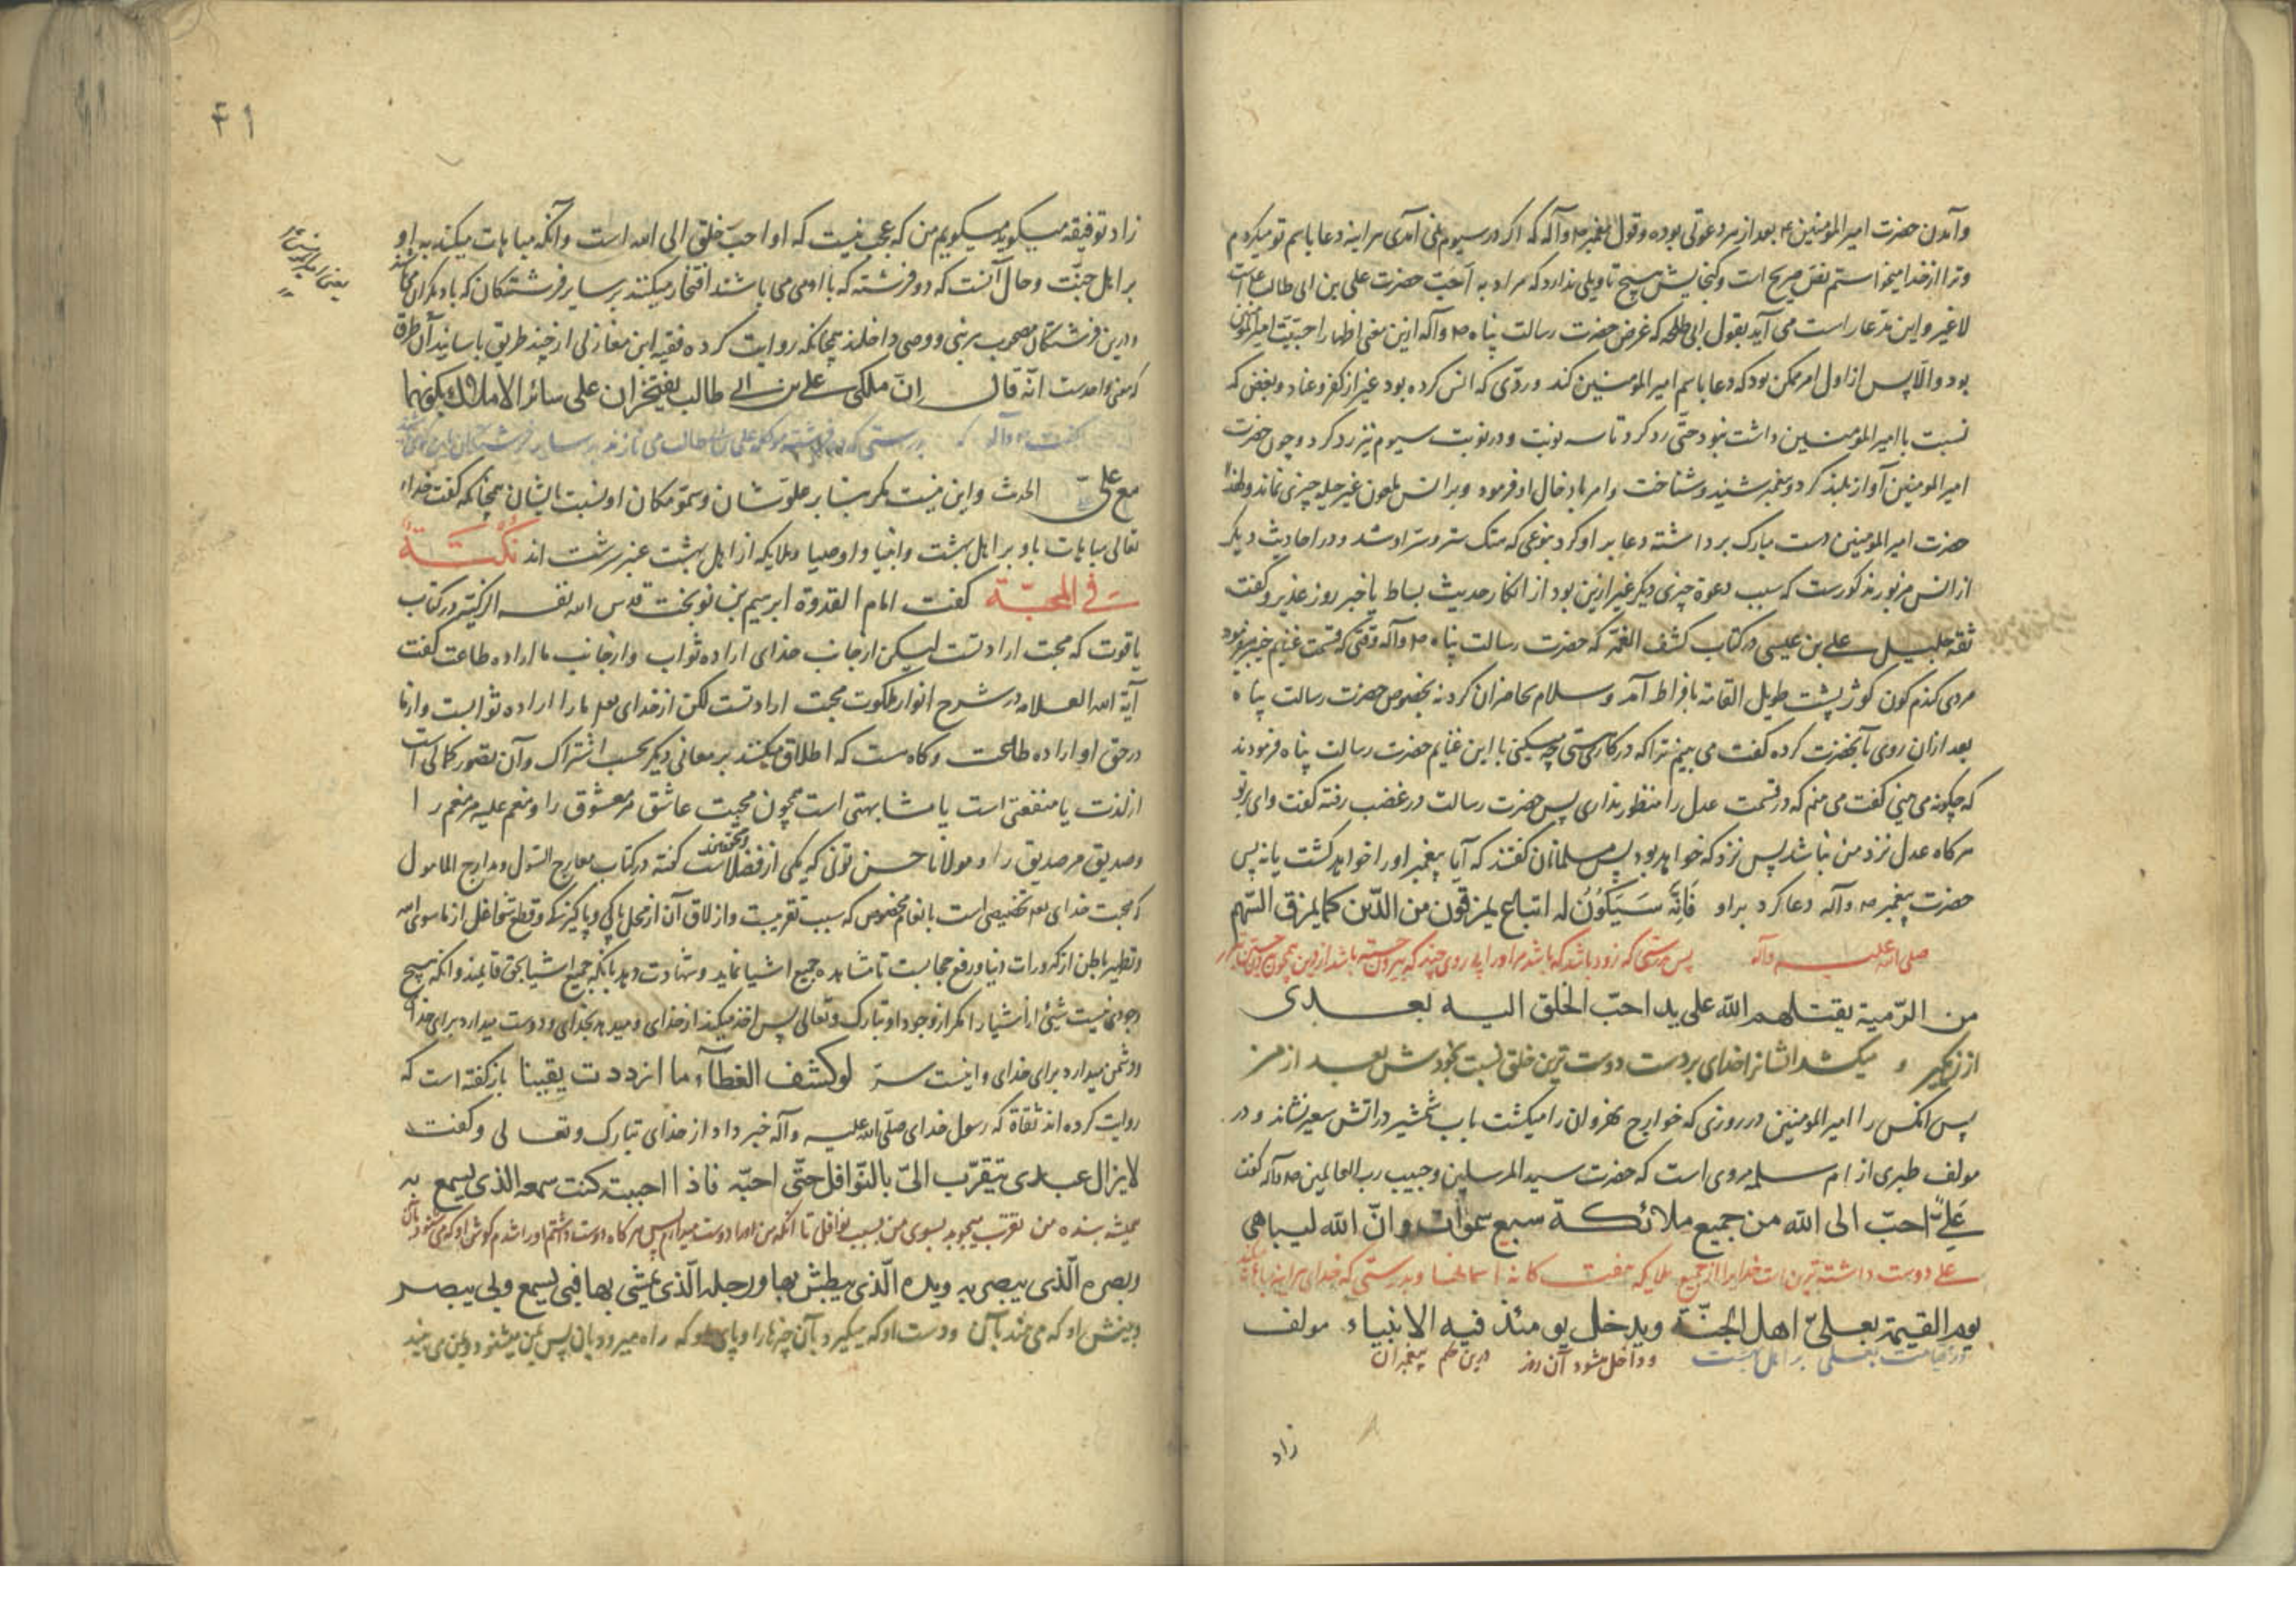 وآمدن حضرت امیرالمؤمنین ع بعد از هر دعوتی بوده و قول پیغمبر ص وآله که اگر در سیوم نمی آمدی هر اینه دعا باسم تو میکردم
وترا از خدا میخواستم نص صریح است و گنجایش هیچ تاویلی ندارد که مراد به احبّ حضرت علی بن ابی طالب است
لاغیر و این می آید بقول ابی طلحه که غرض حضرت رسالت پناه ص وآله ازین معنی اظهار احبیّت امیرالمؤمنین
بود والّا پس از اول امر ممکن بود که دعا باسم امیرالمؤمنین کند وردّی که انس کرده بود غیر از کفر وعناد وبغض که
نسبت با امیرالمؤمنین داشت نبود حتّی رد کرد تا سه نوبت و در نوبت سیوم نیز رد کرد و چون حضرت
امیرالمومنین آواز بلند کرد و پیغمبر شنید و شناخت وامر بادخال او فرمود وبر انس ملعون غیر حیله چیزی نماند ولهذا
حضرت امیرالمومنین دست مبارک برداشته دعا بر او کرد بنوعی که هتک ستر و سرّ او شد و در احادیث دیگر
از انس مزبور مذکورست که سبب دعوة چیزی دیگر غیر ازین بود از انکار حدیث بساط یا خبر روز غدیر و گفت
ثقه جلیل علی بن عیسی در کتاب کشف الغمّه که حضرت رسالت پناه ص وآله وقتی که قسمت غنایم خیبر میفرمود
مردی کندم کون کوژ پشت طویل القامة بافراط آمد و سلام بحاضران کرد نه بخصوص حضرت رسالت پناه
بعد ازان روی بآنحضرت کرده گفت می بینم ترا که در کارستی چه میکنی با این غنایم حضرت رسالت پناه فرمودند
که چگونه می بینی گفت می بینم که در قسمت عدل را منظور نداری پس حضرت رسالت در غضب رفته گفت وای بر تو
هرکاه عدل نزد من نباشد پس نزد که خواهد بود پس مسلمانان گفتند که آیا پیغمبر او را خواهد کشت یا نه پس
حضرت پیغمبر ص وآله دعا کرد براو فَاِنَّه سَیَکُونُ له اتباع یمرقون من الدّین کما یمرق السّهم
صلی الله علیه وآله پس بدرستی که زود باشد که باشد مر او را پی روی چند که بیرون جسته باشد از دین همچون جستن تیر
من الرّمیة یقتلهم اللّه علی ید احبّ الخلق الیه بعدی
از زهگیر و میکشد ایشانرا خدای بر دست دوست ترین خلق نسبت بخودش بعد از من
پس انکس را امیرالمومنین در روزی که خوارج نهروان را میکشت بآب شمشیر در اتش سعیر نشاند و در
مولف طبری از ام سلمه مروی است که حضرت سید المرسلین و حبیب رب العالمین ص وآله گفت
عَلِیٌّ احبّ الی اللّه من جمیع ملائکة سبع سموات وانّ اللّه لیباهی
علی دوست داشته ترین است خدایرا از جمیع ملایکه هفت کانه اسمانها و بدرستی که خدای هر اینه مباهات میکند
یوم القیمة بعلیّ اهل الجنّة ویدخل یومئذ فیه الانبیاء. مولف
در قیامت بعلی بر اهل بهشت و داخل میشود آن روز درین حکم پیغمبران
زاد
۴۱
یعنی امیرالمومنین ع
زاد توفیقه میکوید میکویم من که عجب نیست که او احبّ خلق الی الله است وآنکه مباهات میکند به او
بر اهل جنّت و حال آنست که دو فرشته که با او می باشند افتخار میکنند بر سایر فرشتکان که با دیکران می باشند
ودرین فرشتکان مصحوب هر نبی و وصی داخلند همچنانکه روایت کرده فقیه ابن مغازلی از چند طریق باسانید آن طرق
که معنی واحدست انّه قال اِنّ ملکی علی بن ابی طالب یفتخران علی سائر الاملاک بکونهما
گفت ص وآله که بدرستی که دو فرشته موکله علی بن ابی طالب می نازند بر سایر فرشتکان
مع علیّ الحدیث واین نیست مکر بنابر علوّ شان وسموّ مکان او نسبت بایشان همچنانکه گفت خدای
تعالی مباهات باو بر اهل بهشت وانبیا و اوصیا وملایکه از اهل بهشت عنبر سرشت اند نُکْتَةٌ
فی المحبّة گفت امام القدوة ابرهیم بن نوبخت قدس الله نفسه الزکیّه در کتاب
یاقوت که محبت ارادتست لیکن از جانب خدای اراده ثواب وازجانب ما اراده طاعت گفت
آیة الله العلامه در شرح انوار ملکوت محبت ارادتست لکن از خدای بما را اراده ثوابست واز ما
در حق او اراده طاعت وکاه هست که اطلاق میکنند بر معانی دیکر بحسب اشتراک وآن تصور کمالی است
از لذت یا منفعتی است یا مشابهتی است همچون محبت عاشق مر معشوق را ومنعم علیه مر منعم را
وصدیق مر صدیق را و مولانا حسن تونی که یکی از فضلاست گفته در کتاب معارج السّول ومدارج المامول
که محبت خدای تخصیصی است بانعام مخصوص که سبب تقرّبست وازلاق آن از محل پاکی و پاکیزکی وقطع شواغل از ماسوی الله
وتطهیر باطن از کدورات دنیا ورفع حجابست تا مشاهده جمیع اشیا نماید وشهادت دهد بانکه جمیع اشیا بحق قایمند وانکه هیچ
وجودی نیست شیئ از اشیا را مکر از وجود او تبارک وتعالی پس اخذ میکند از خدای ومیدهد بخدای ودوست میدارد برای خدای
ودشمن میدارد برای خدای واینست سرّ لو کشف الغطآء ما ازددت یقینا بازکفته است که
روایت کرده اند ثقاة که رسول خدای صلّی اللّه علیه وآله خبر داد از خدای تبارک وتعالی وکفت
لایزال عبدی یتقرّب الیّ بالنّوافل حتّی احبّه فاذا احببته کنت سمعه الذی یسمع به
همیشه بنده من تقرّب میجوید بسوی من بسبب نوافل تا انکه من او را دوست میدارم پس هرکاه دوست داشتم او را شدم کوش او که می شنود بآن
وبصره الّذی یبصر به ویده الّذی یبطش بها ورجله الّذی یمشی بها فبی یسمع وبی یبصر
وبینش او که می بیند بآن ودست او که میکیرد بآن چیزها را و پای او که راه میرود بان پس بمن میشنود وبمن می بیند